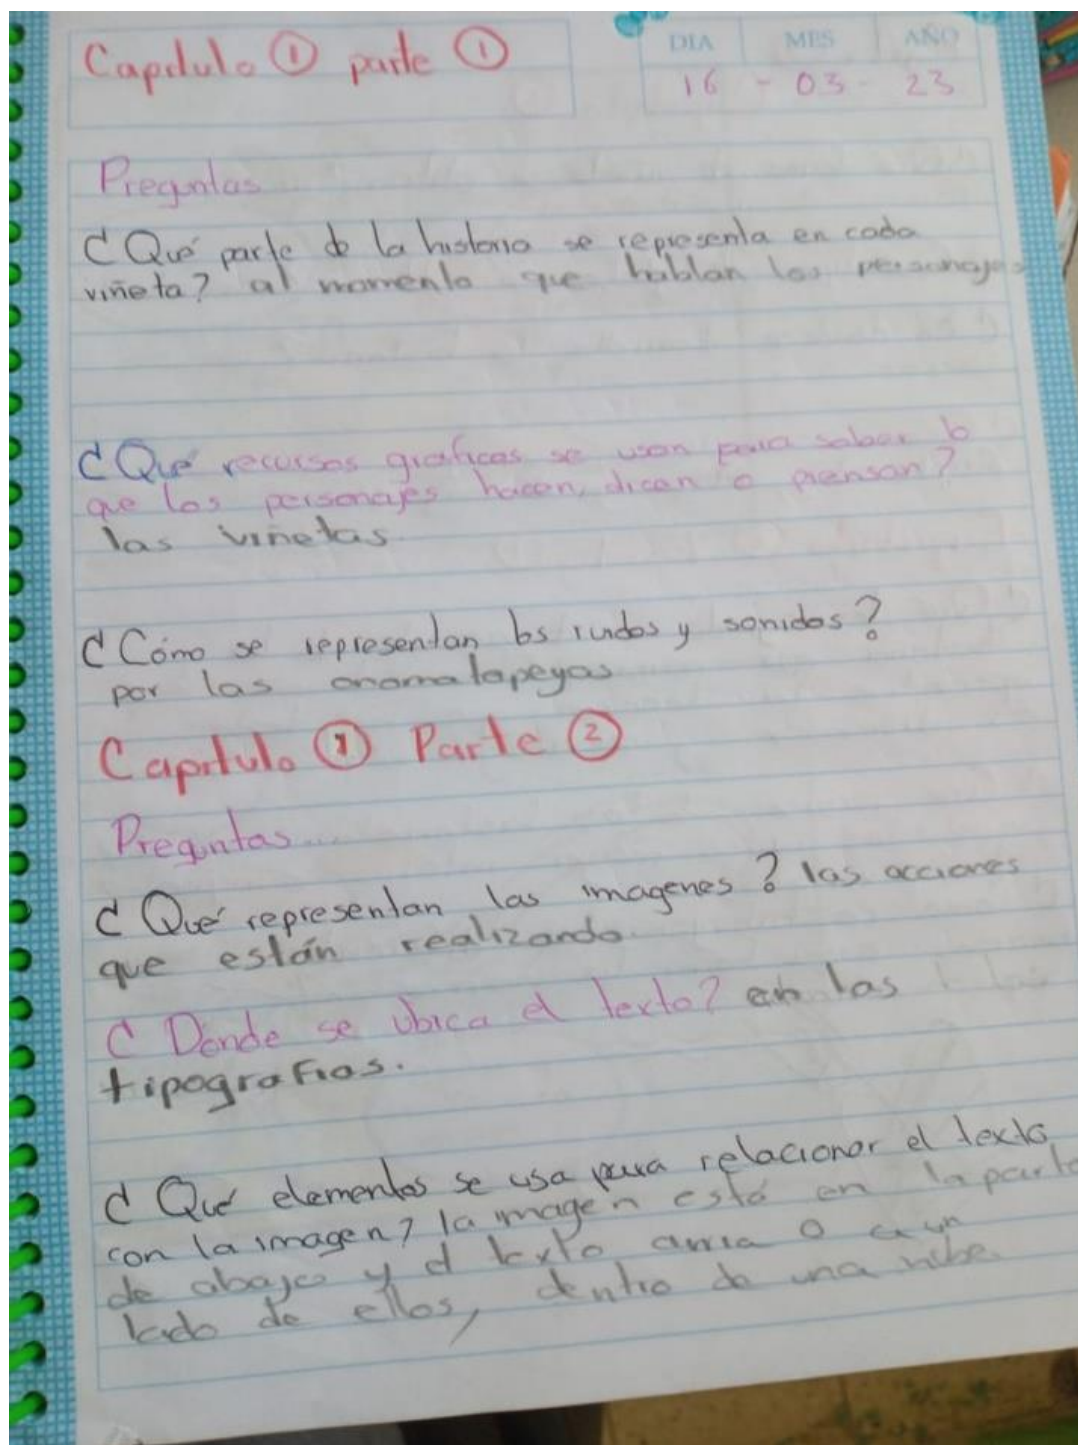 Capitulo ① parte ①
DIA MES AÑO
16 - 03 - 23
Preguntas
¿Qué parte de la historia se representa en cada
viñeta? al momento que hablan los personajes
¿Qué recursos graficos se usan para saber lo
que los personajes hacen, dicen o piensan?
las viñetas
¿Cómo se representan los ruidos y sonidos?
por las onomatopeyas
Capitulo ① Parte ②
Preguntas...
¿Qué representan las imagenes? las acciones
que están realizando.
¿Dónde se ubica el texto? en las
tipografias.
¿Qué elementos se usa para relacionar el texto
con la imagen? la imagen está en la parte
de abajo y el texto arria o a un
lado de ellos, dentro de una nube.